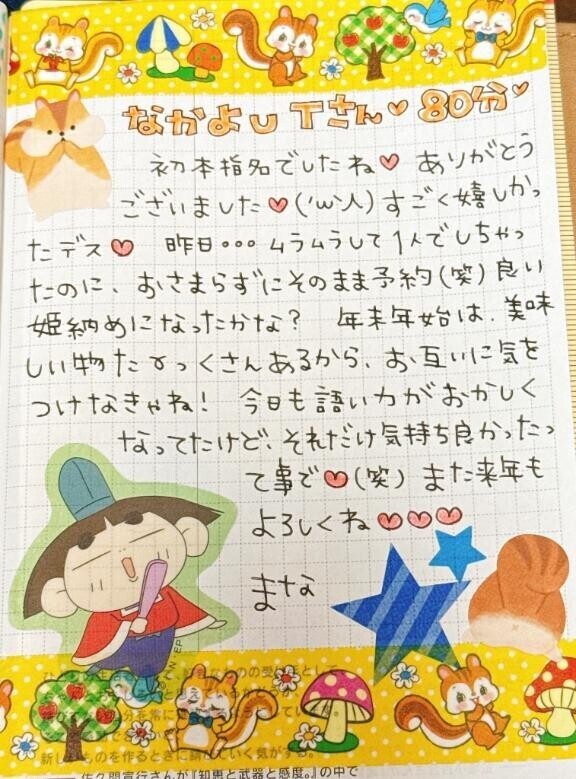 なかよし Tさん♡ 80分♡
初本指名でしたね♡ ありがとう
ございました♡('ω'人)すごく嬉しかっ
たデス♡ 昨日・・・ムラムラして1人でしちゃっ
たのに、おさまらずにそのまま予約(笑)良い
姫納めになったかな? 年末年始は、美味
しい物たくさんあるから、お互いに気を
つけなきゃね! 今日も語い力がおかしく
なってたけど、それだけ気持ち良かったっ
て事で♡(笑) また来年も
よろしくね♡♡♡
まな
新しいものを作るときに
いく気がする。
佐久間宣行さんが『知恵と武器と感度。』の中で